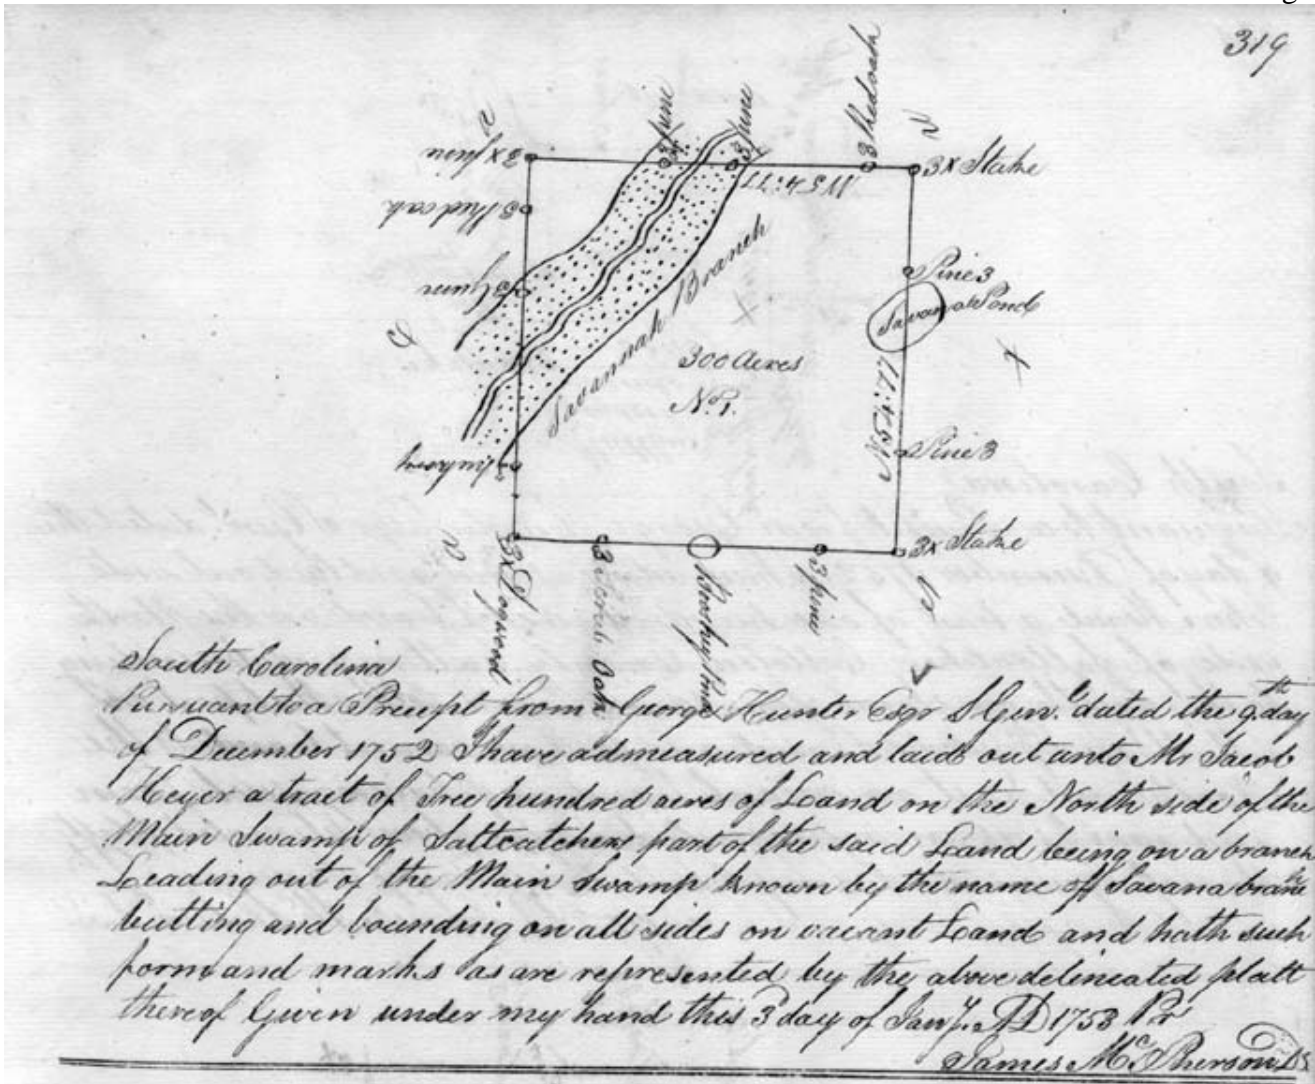 319
3 Redoak
3 pine
3 pine
3x pine
3x Stake
3 Redoak
N 54:77
3 Gum
Pine 3
Savana Pond
Savannah Branch
300 Acres
No. 1.
Pine 3
3x Stake
3x Dogwood
3 Scrub Oak
3 pine
South Carolina
Pursuant to a Precept from George Hunter Esqr S Genl. dated the 9th day
of December 1752 I have admeasured and laid out unto Mr Jacob
Heyer a tract of Tree hundred acres of Land on the North side of the
Main Swamp of Saltcatchers part of the said Land being on a branch
Leading out of the Main Swamp known by the name of Savana branch
butting and bounding on all sides on vacant Land and hath such
form and marks as are represented by the above delineated platt
thereof Given under my hand this 3 day of Jany. AD 1753 Pr
James McPherson DS